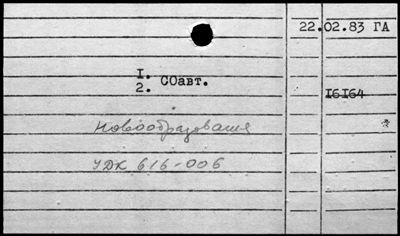 22.02.83 ГА
1. СОавт.
2.
16164
Новообразования
УДК 616-006